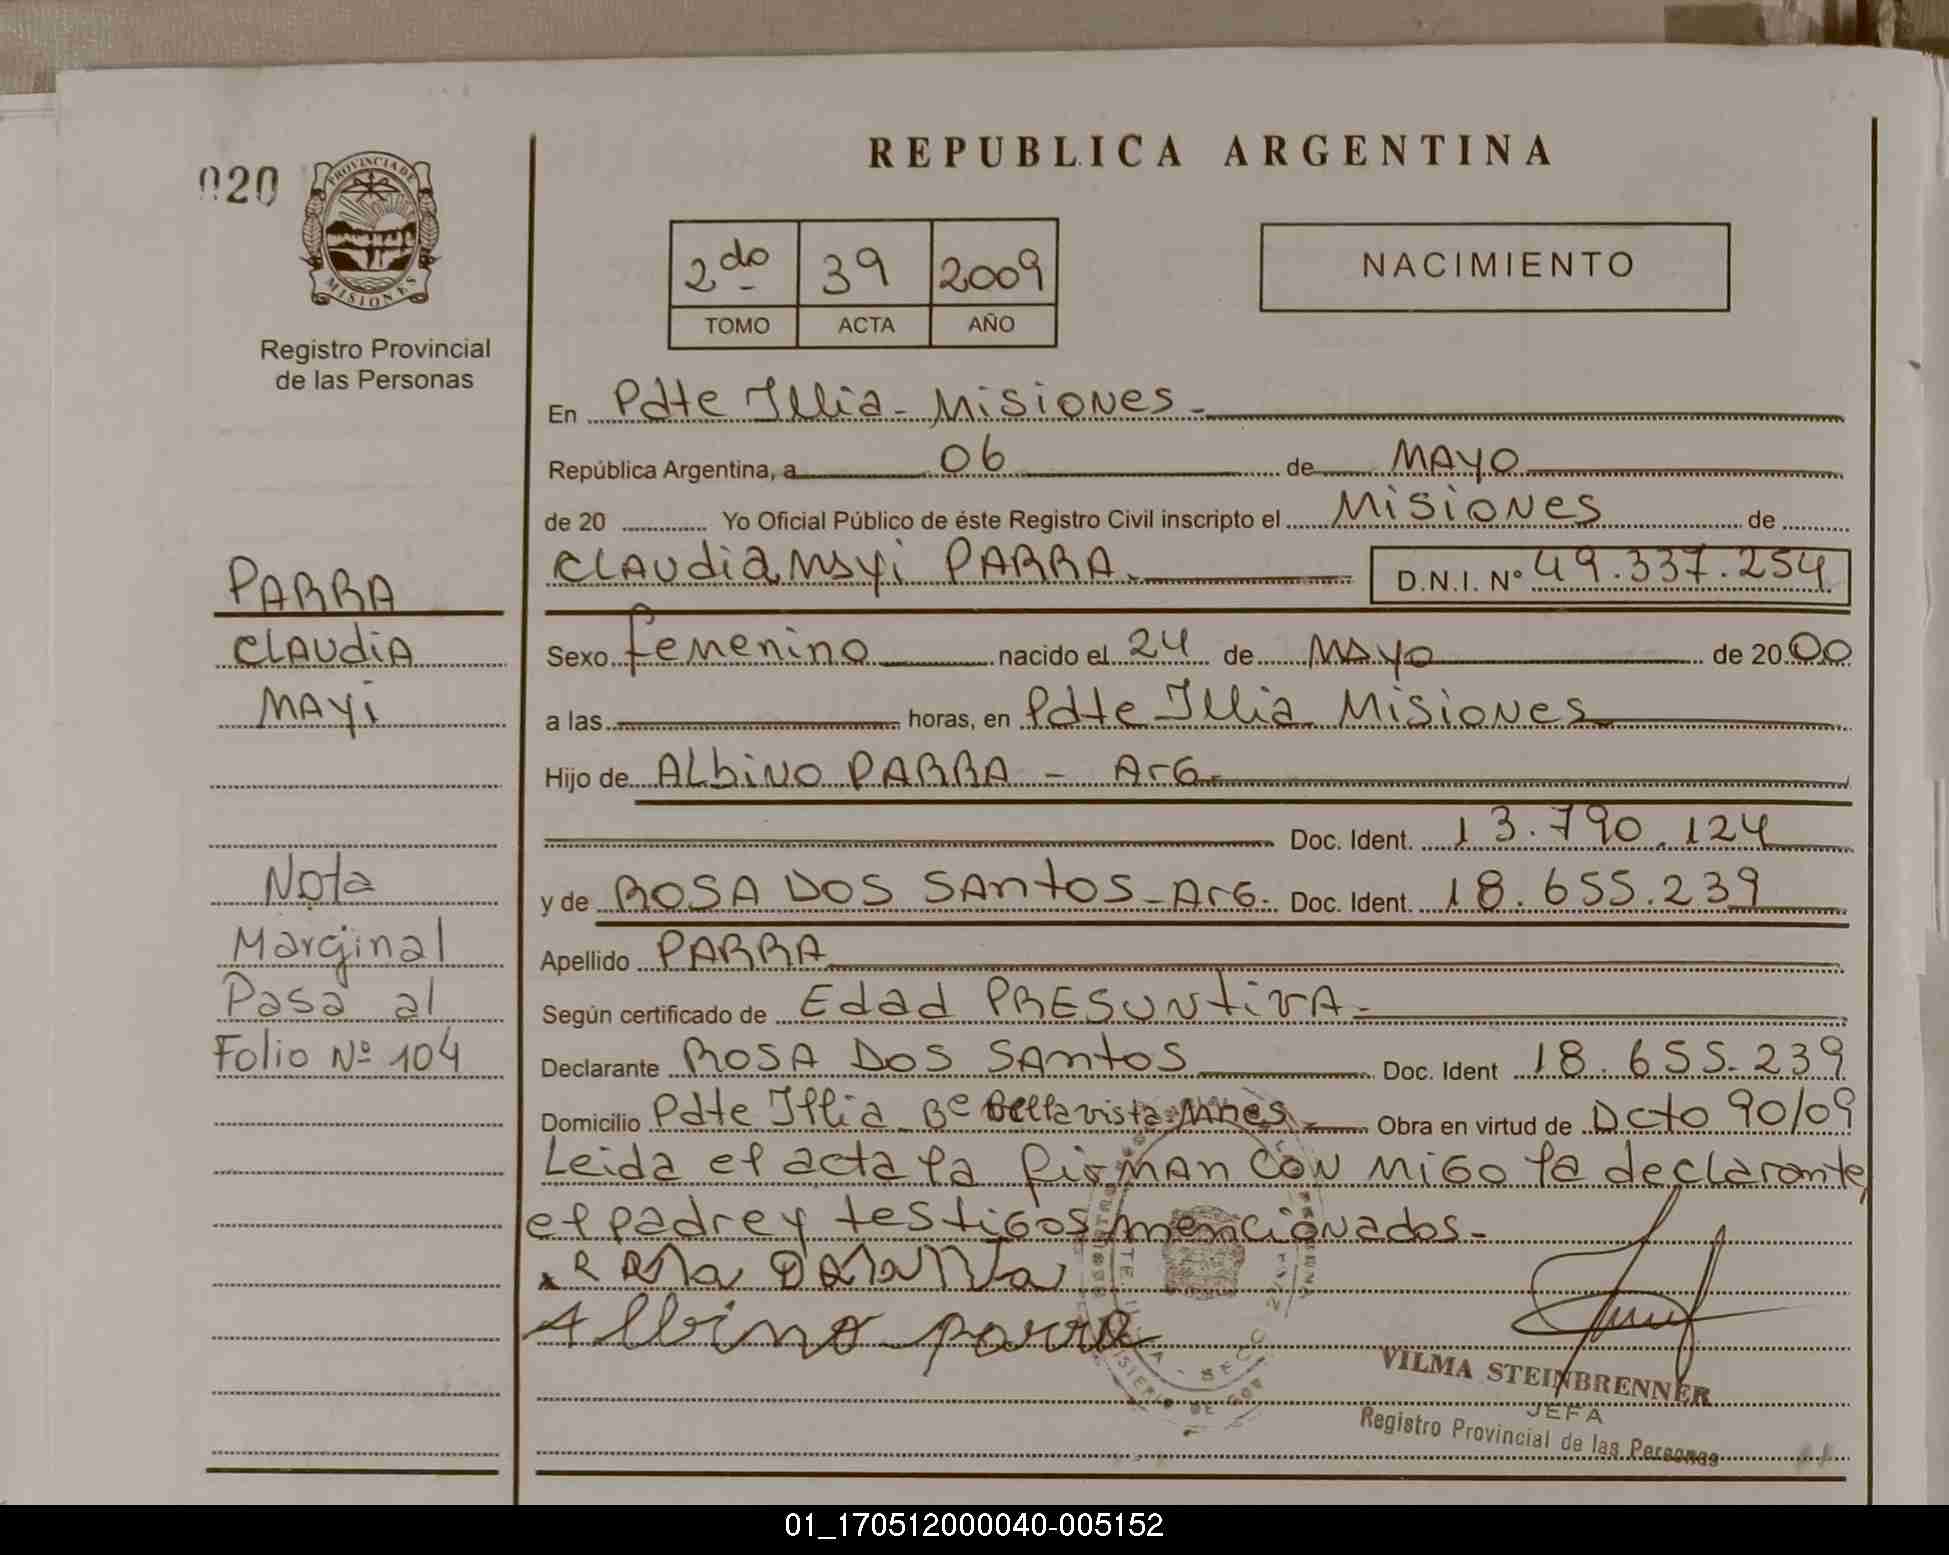 REPUBLICA ARGENTINA
020
PROVINCIA DE
MISIONES
Registro Provincial
de las Personas
2do 39 2009
TOMO ACTA AÑO
NACIMIENTO
En Pdte Illia - Misiones -
República Argentina, a 06 de MAYO
de 20 ............. Yo Oficial Público de éste Registro Civil inscripto el Misiones de ..........
CLAUdia Mayi PARRA. D.N.I. Nº 49.337.254
PARRA
CLAUdiA
MAYi
Sexo femenino nacido el 24 de MAYO de 2000
a las horas, en Pdte Illia Misiones
Hijo de ALbiNO PARRA - ArG.
Doc. Ident. 13.790.124
y de ROSA DOS SAntoS - ArG. Doc. Ident. 18.655.239
Apellido PARRA
Según certificado de Edad PRESUNtivA -
Declarante ROSA DOS SAntoS Doc. Ident 18.655.239
Domicilio Pdte Illia Bº Bella vista Mnes. Obra en virtud de Dcto 90/09
Leida el acta la firman CON MiGO la declarante,
el padre y testigos mencionados -
Nota
Marginal
Pasa al
Folio Nº 104
Albino parra
VILMA STEINBRENNER
JEFA
Registro Provincial de las Personas
01_170512000040-005152